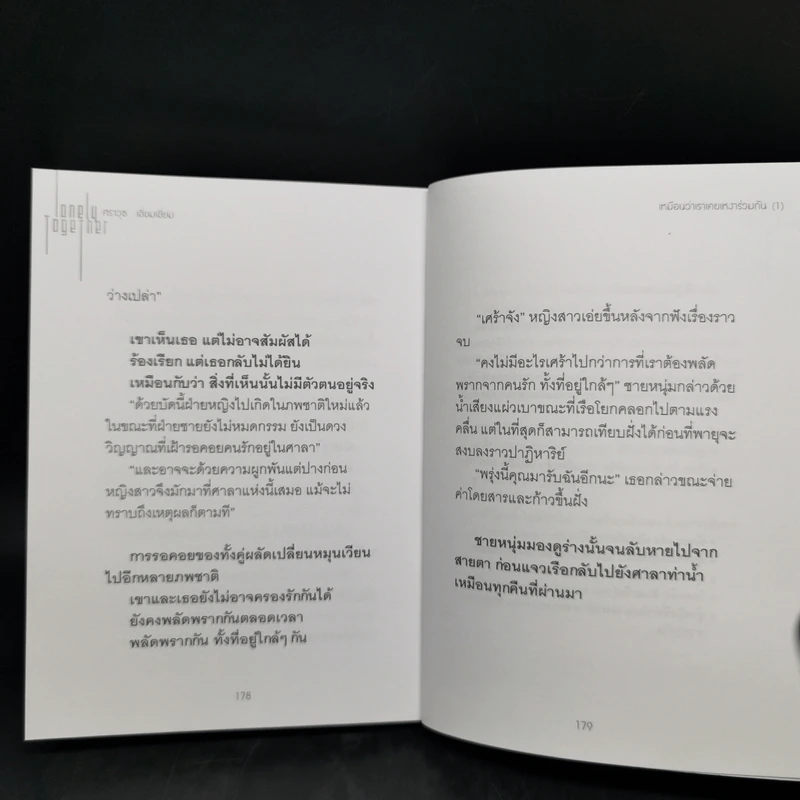 lonely
Together
ศราวุธ เอี่ยมเซี่ยม
ว่างเปล่า"
เขาเห็นเธอ แต่ไม่อาจสัมผัสได้
ร้องเรียก แต่เธอกลับไม่ได้ยิน
เหมือนกับว่า สิ่งที่เห็นนั้นไม่มีตัวตนอยู่จริง
"ด้วยบัดนี้ฝ่ายหญิงไปเกิดในภพชาติใหม่แล้ว
ในขณะที่ฝ่ายชายยังไม่หมดกรรม ยังเป็นดวง
วิญญาณที่เฝ้ารอคอยคนรักอยู่ในศาลา"
"และอาจจะด้วยความผูกพันแต่ปางก่อน
หญิงสาวจึงมักมาที่ศาลาแห่งนี้เสมอ แม้จะไม่
ทราบถึงเหตุผลก็ตามที"
การรอคอยของทั้งคู่ผลัดเปลี่ยนหมุนเวียน
ไปอีกหลายภพชาติ
เขาและเธอยังไม่อาจครองรักกันได้
ยังคงพลัดพรากกันตลอดเวลา
พลัดพรากกัน ทั้งที่อยู่ใกล้ๆ กัน
178
เหมือนว่าเราเคยเหงาร่วมกัน (1)
"เศร้าจัง" หญิงสาวเอ่ยขึ้นหลังจากฟังเรื่องราว
จบ
"คงไม่มีอะไรเศร้าไปกว่าการที่เราต้องพลัด
พรากจากคนรัก ทั้งที่อยู่ใกล้ๆ" ชายหนุ่มกล่าวด้วย
น้ำเสียงแผ่วเบาขณะที่เรือโยกคลอกไปตามแรง
คลื่น แต่ในที่สุดก็สามารถเทียบฝั่งได้ก่อนที่พายุจะ
สงบลงราวปาฏิหาริย์
"พรุ่งนี้คุณมารับฉันอีกนะ" เธอกล่าวขณะจ่าย
ค่าโดยสารและก้าวขึ้นฝั่ง
ชายหนุ่มมองดูร่างนั้นจนลับหายไปจาก
สายตา ก่อนแจวเรือกลับไปยังศาลาท่าน้ำ
เหมือนทุกคืนที่ผ่านมา
179